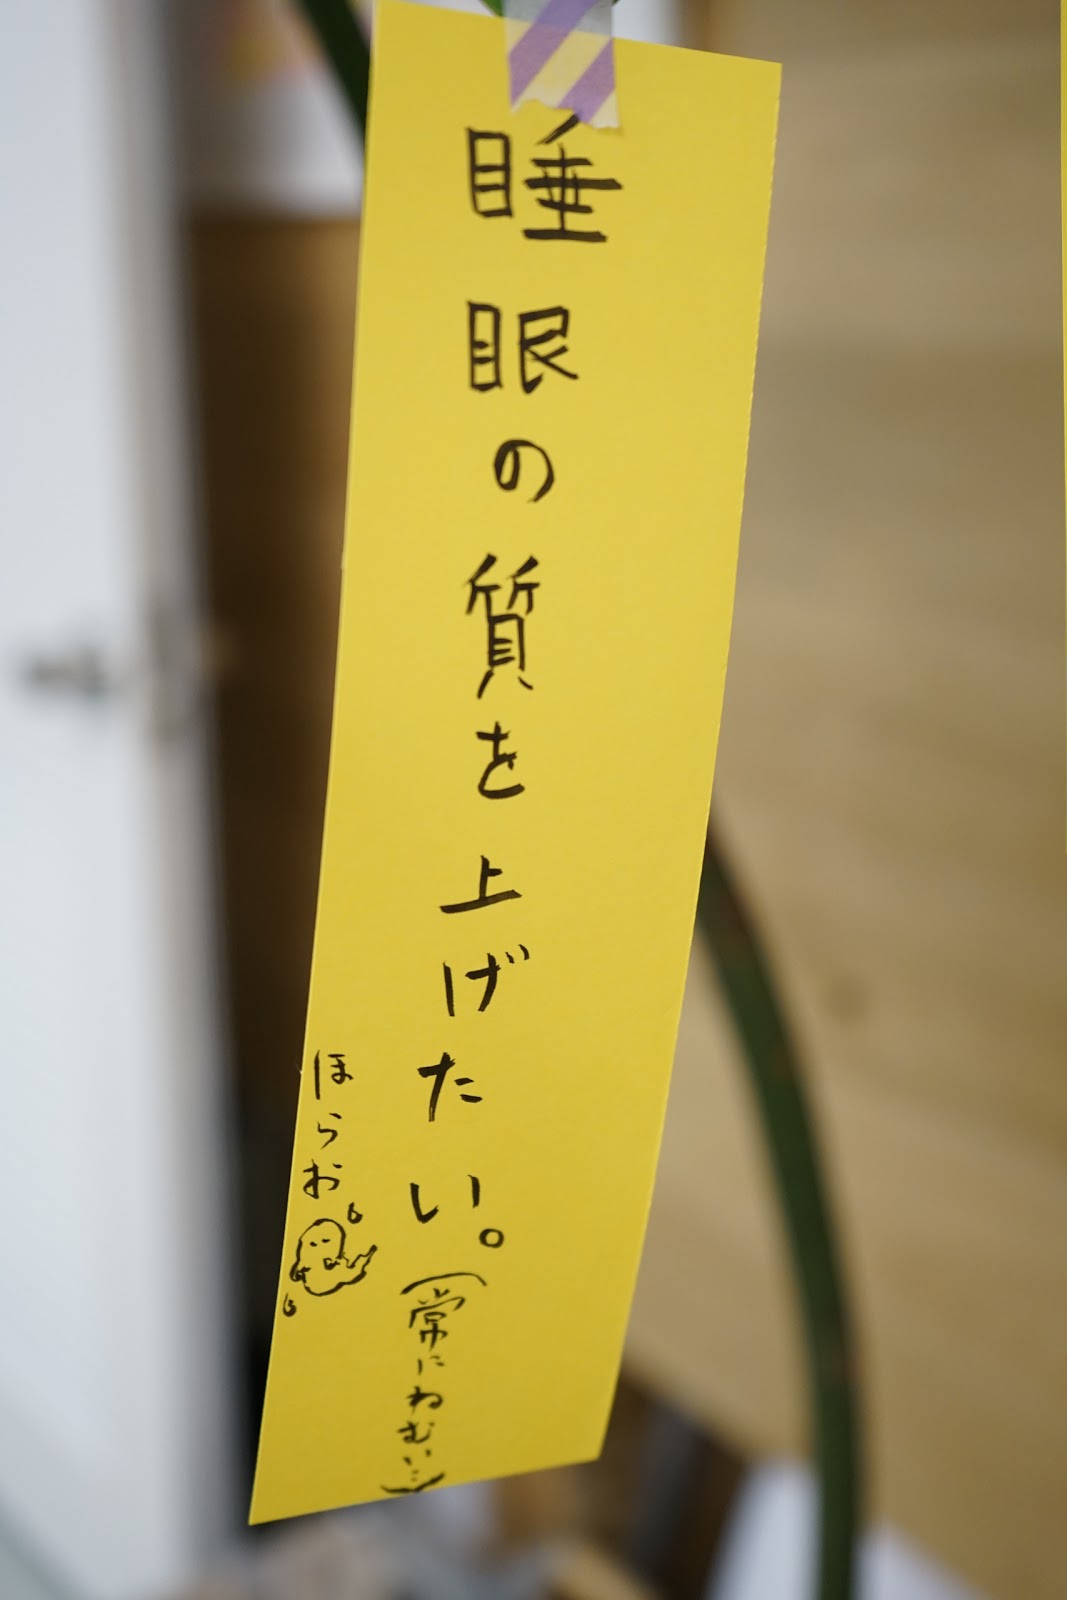 睡眠の質を上げたい。(常にねむい…)
ほらお